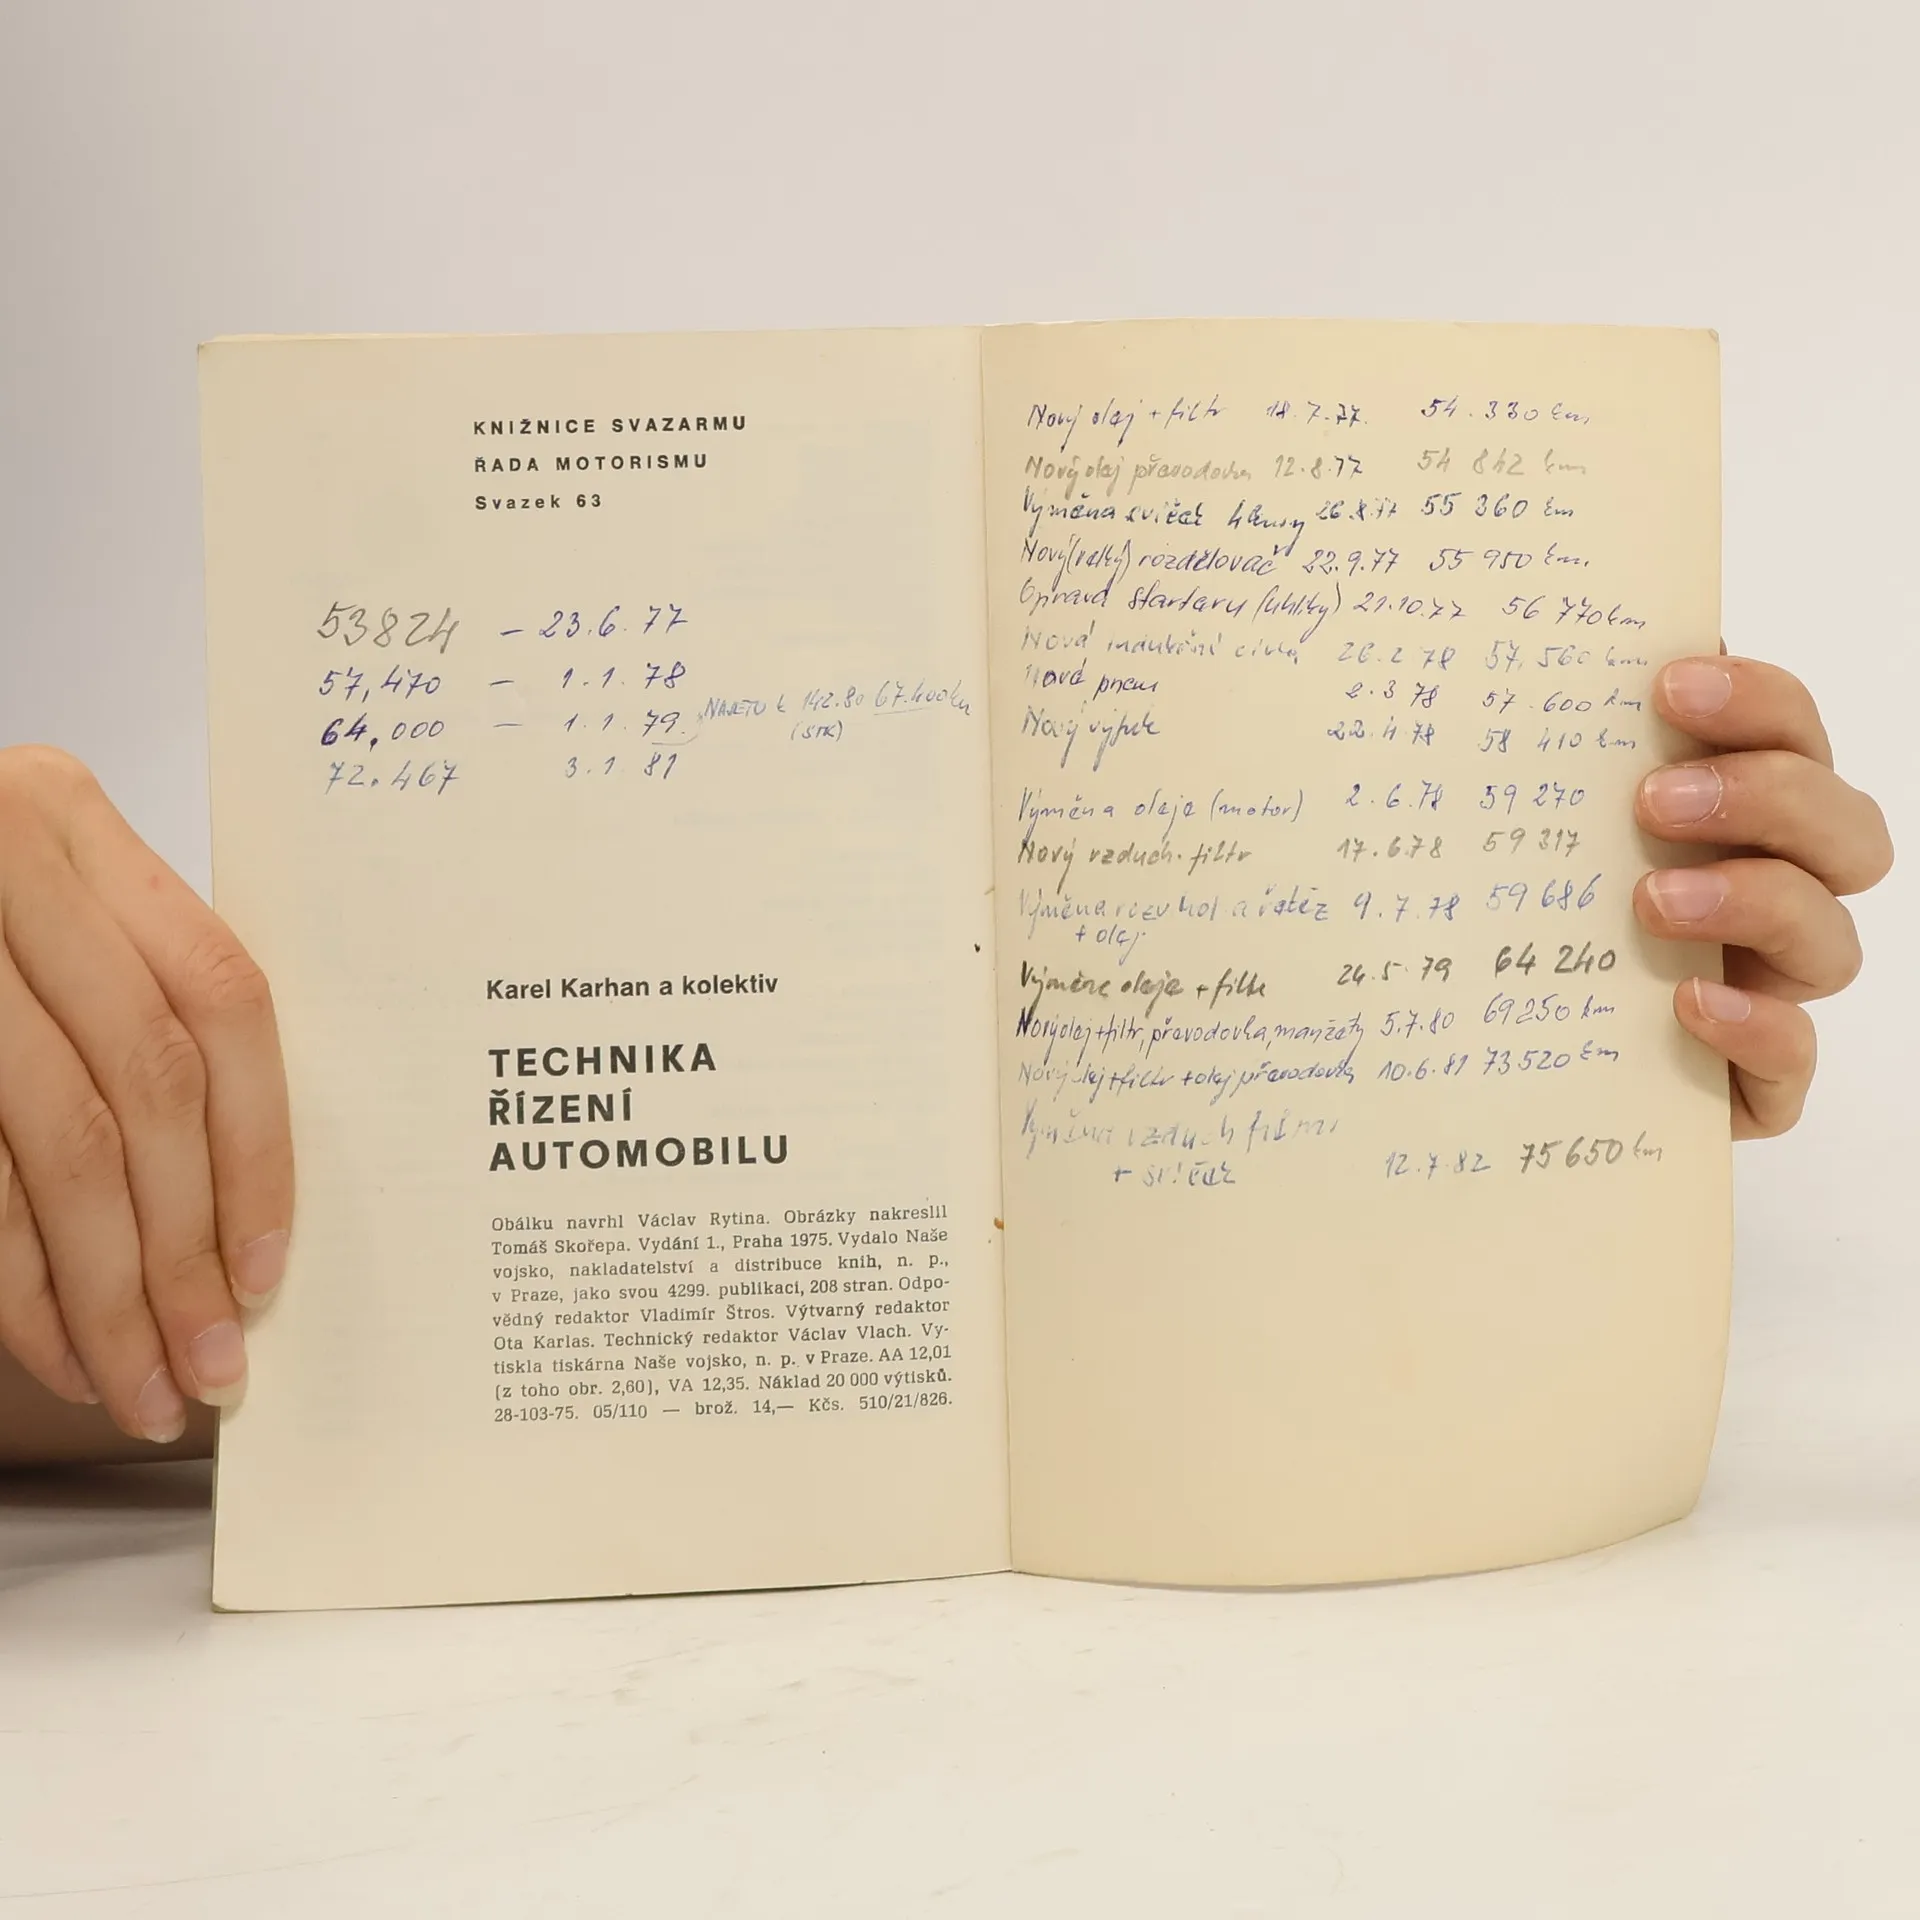 KNIŽNICE SVAZARMU
ŘADA MOTORISMU
Svazek 63
53824 – 23.6.77
57,470 – 1.1.78
64,000 – 1.1.79
67.400
(STK)
72.467 3.1.81
Karel Karhan a kolektiv
TECHNIKA
ŘÍZENÍ
AUTOMOBILU
Obálku navrhl Václav Rytina. Obrázky nakreslil
Tomáš Skořepa. Vydání 1., Praha 1975. Vydalo Naše
vojsko, nakladatelství a distribuce knih, n. p.,
v Praze, jako svou 4299. publikaci, 208 stran. Odpo-
vědný redaktor Vladimír Štros. Výtvarný redaktor
Ota Karlas. Technický redaktor Václav Vlach. Vy-
tiskla tiskárna Naše vojsko, n. p. v Praze. AA 12,01
(z toho obr. 2,60), VA 12,35. Náklad 20 000 výtisků.
28-103-75. 05/110 — brož. 14,— Kčs. 510/21/826.
Nový olej + filtr 18.7.77. 54.330 km
Nový olej převodovka 12.8.77 54 842 km
Výměna svíček 26.8.77 55 360 km
Nový (velký) rozdělovač 22.9.77 55 950 km.
Oprava startaru (uhlíky) 21.10.77 56 770 km
Nová indukční cívka 26.2 78 57,560 km
Nové pneu 2.3 78 57.600 km
Nový výfuk 22.4.78 58 410 km
Výměna oleje (motor) 2.6.78 59 270
Nový vzduch. filtr 17.6.78 59 317
Výměna a řetěz 9.7.78 59 686
+ olej
Výměna oleje + filtr 24.5.79 64 240
Nový olej + filtr, převodovka, manžety 5.7.80 69250 km
Nový olej + filtr + olej převodovka 10.6.81 73 520 km
Výměna vzduch
+ svíček 12.7.82 75650 km